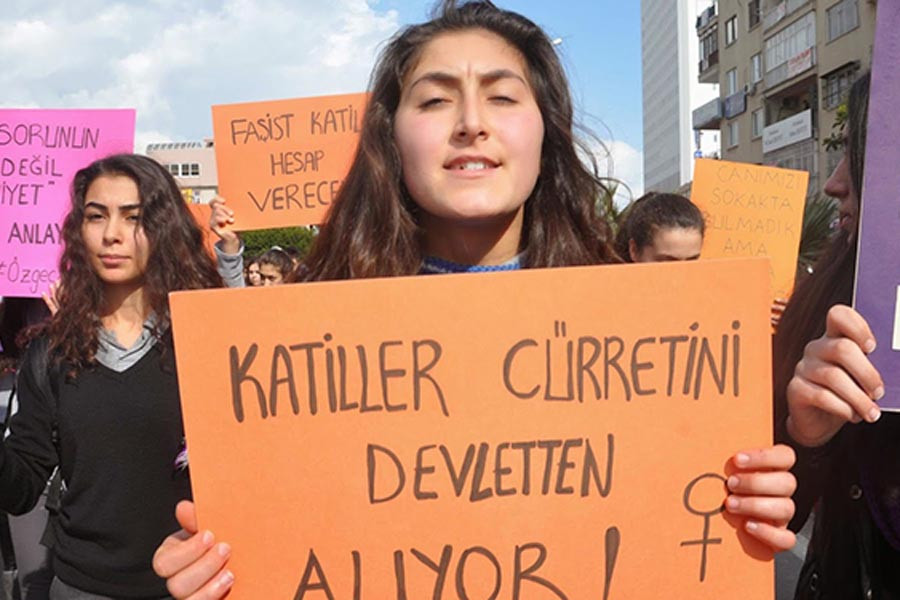 SORUNUN
DEĞİL
İYET"
ANLAY
#Özgec
FAŞİST KATİL
HESAP
VERECE
CANIMIZI
SOKAKTA
BULMADIK
AMA
KATİLLER CÜRRETİNİ
DEVLETTEN
ALIYOR!